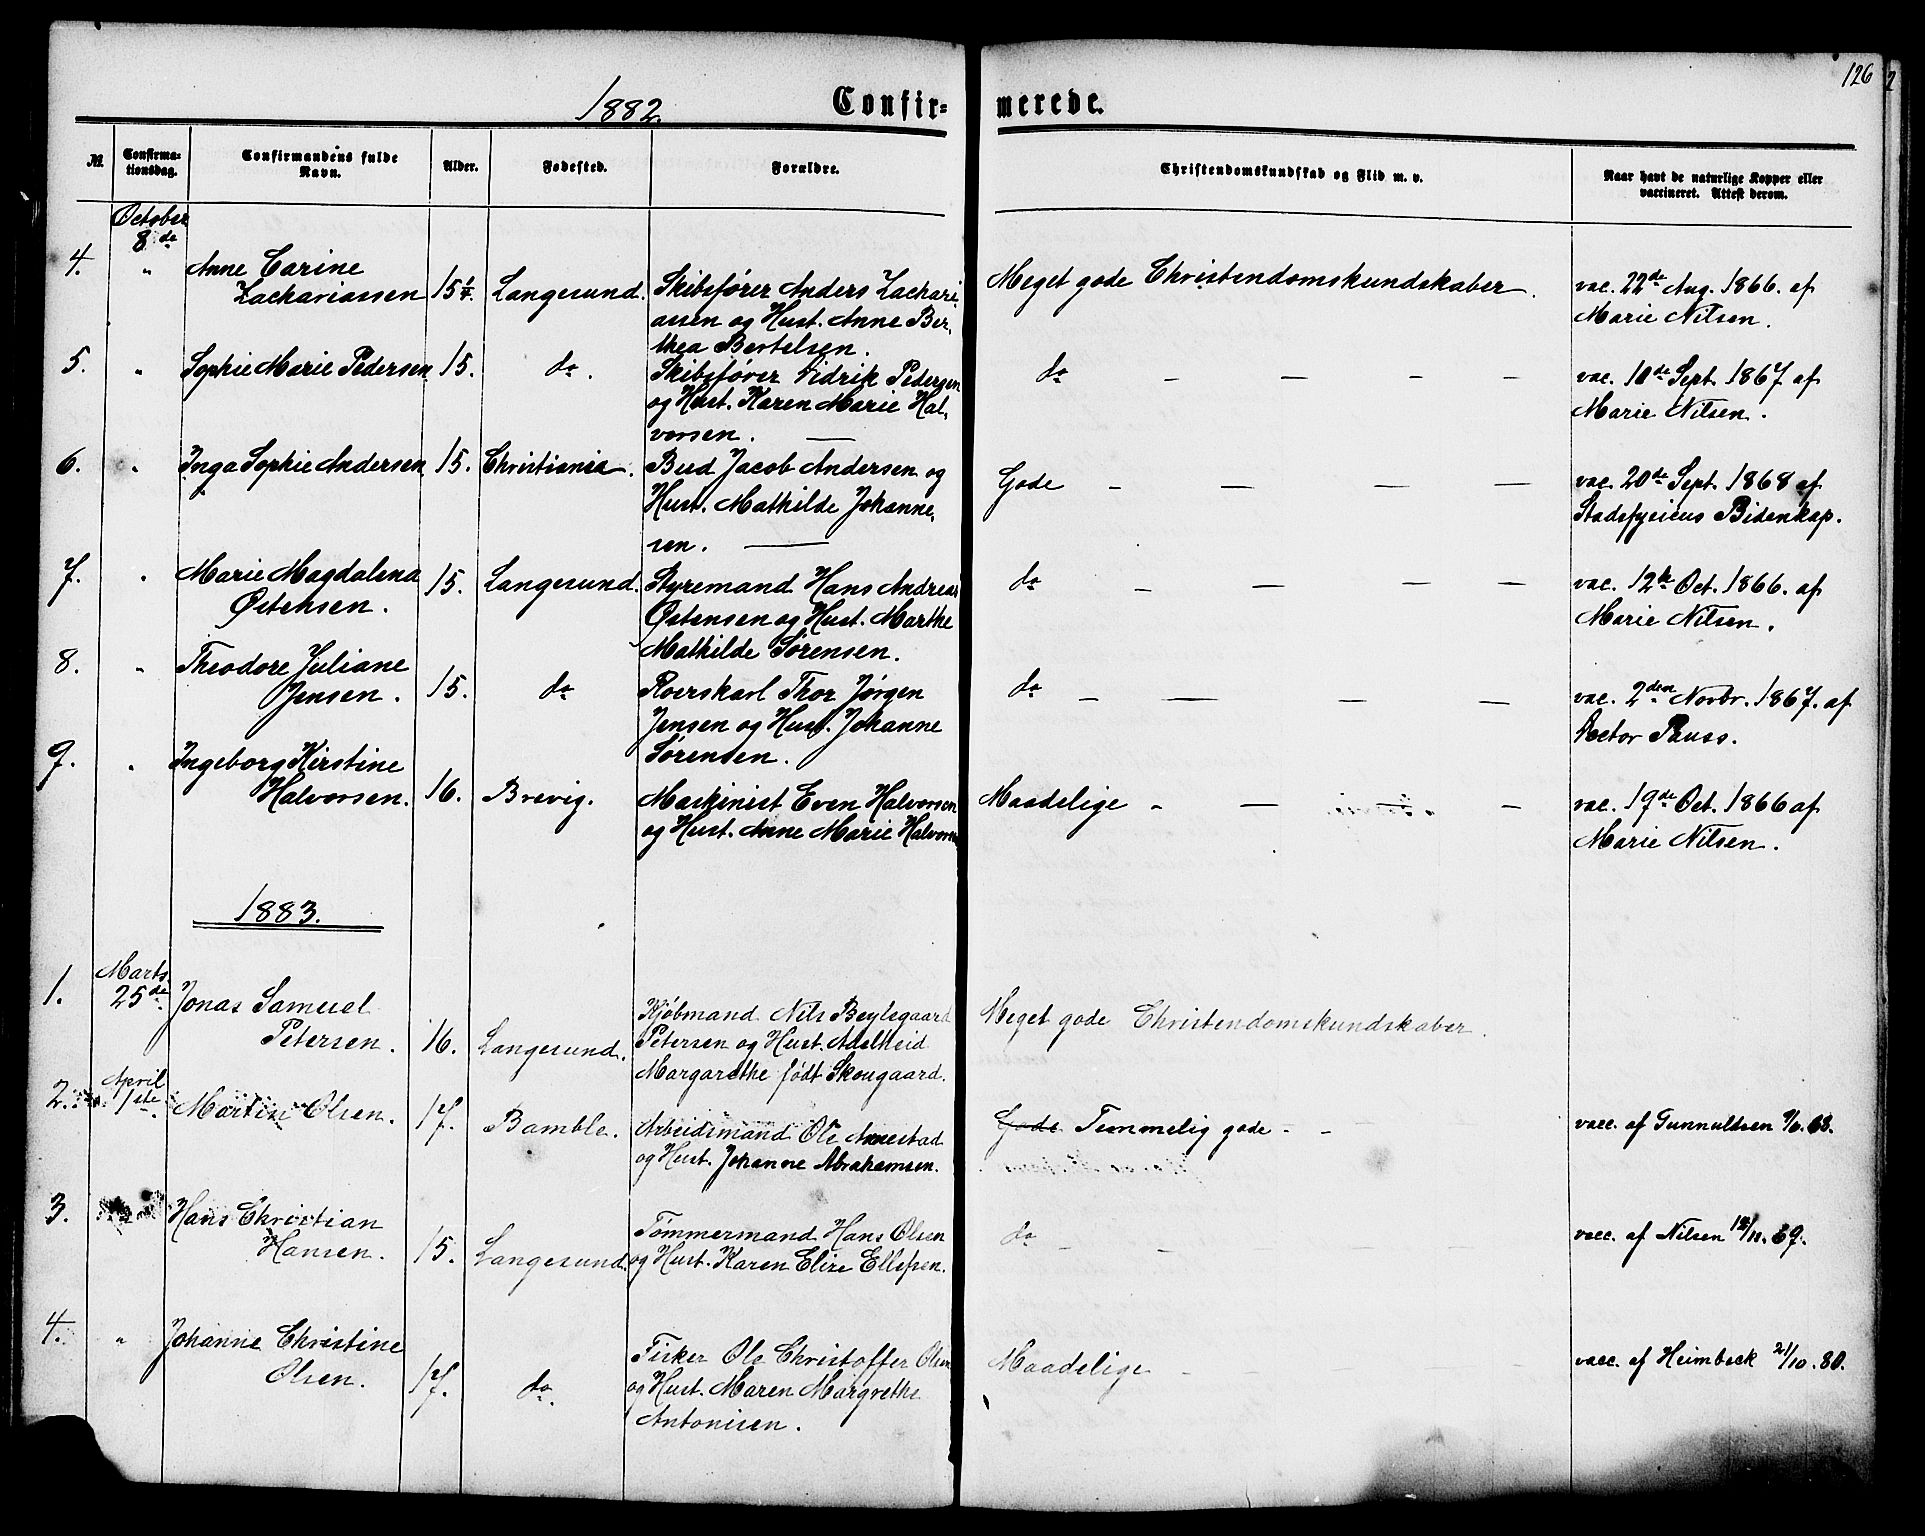 126
1882.
Confirmerede.
№.
Confirmationsdag.
Confirmandens fulde Navn.
Alder.
Fødested.
Forældre.
Christendomskundskab og Flid m. v.
Naar havt de naturlige Kopper eller
vaccineret. Attest derom.
October
8de
4. " Anne Carine
Zachariassen 15¼. Langesund. Skibsfører Anders Zachari-
assen og Hust. Anne Ber-
thea Bertelsen.
Meget gode Christendomskundskaber.
vac. 22de Aug. 1866. af
Marie Nilsen.
5. " Sophie Marie Pedersen 15. do. Skibsfører Didrik Pedersen
og Hust. Karen Marie Hal-
vorsen. —
do — — — —
vac. 10de Sept. 1867 af
Marie Nilsen.
6. " Inga Sophie Andersen 15. Christiania. Bud Jacob Andersen og
Hust. Mathilde Johanne-
sen. —
Gode — — — —
vac. 20de Sept. 1868 af
Stadsfysicus Bidenkap.
7. " Marie Magdalena
Østensen. 15. Langesund. Styremand Hans Andreas
Østensen og Hust. Marthe
Mathilde Sørensen.
do — — — —
vac. 12te Oct. 1866. af
Marie Nilsen.
8. " Theodore Juliane
Jensen. 15. do Roerskarl Thor Jørgen
Jensen og Hust. Johanne
Sørensen.
do — — — —
vac. 2den Novbr. 1867. af
Actor Pauss.
9. " Ingeborg Kirstine
Halvorsen. 16. Brevig. Maskinist Even Halvorsen
og Hust. Anne Marie Halvorsen
Maadelige — — — —
vac. 19de Oct. 1866 af
Marie Nilsen.
1883.
1. Marts
25de. Jonas Samuel
Petersen. 16. Langesund. Kjøbmand Nils Beylegaard
Petersen og Hust. Adelheid
Margarethe født Skougaard.
Meget gode Christendomskundskaber.
2. April
1ste. Martin Olsen. 17. Bamble. Arbeidsmand Ole Annestad
og Hust. Johanne Abrahamsen.
Gode Temmelig gode - -
vacc. af Gunnuldsen 68.
3. Hans Christian
Hansen. 15. Langesund. Tømmermand Hans Olsen
og Hust. Karen Elise Ellefsen.
do - -
vacc. af Nilsen 12/11. 69.
4. " Johanne Christine
Olsen. 17. do. Fisker Ole Christoffer Olsen
og Hust. Maren Margrethe
Antonisen.
Maadelige - -
vacc. af Heimbeck 21/10. 80.